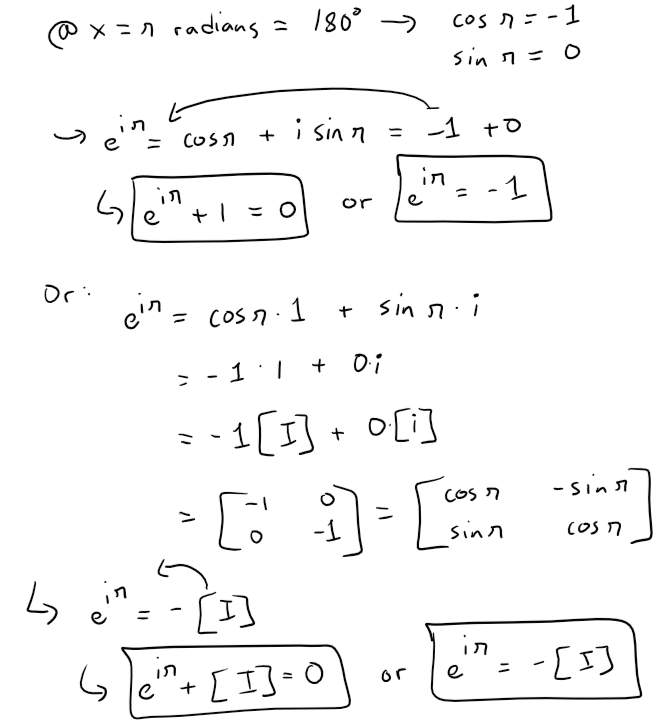 @ x = π radians = 180° → cos π = -1
sin π = 0
→ e^{iπ} = cos π + i sin π = -1 + 0
↳ e^{iπ} + 1 = 0 or e^{iπ} = -1
Or: e^{iπ} = cos π · 1 + sin π · i
= -1 · 1 + 0·i
= -1[I] + 0·[i]
= [-1 0; 0 -1] = [cos π -sin π; sin π cos π]
↳ e^{iπ} = -[I]
↳ e^{iπ} + [I] = 0 or e^{iπ} = -[I]